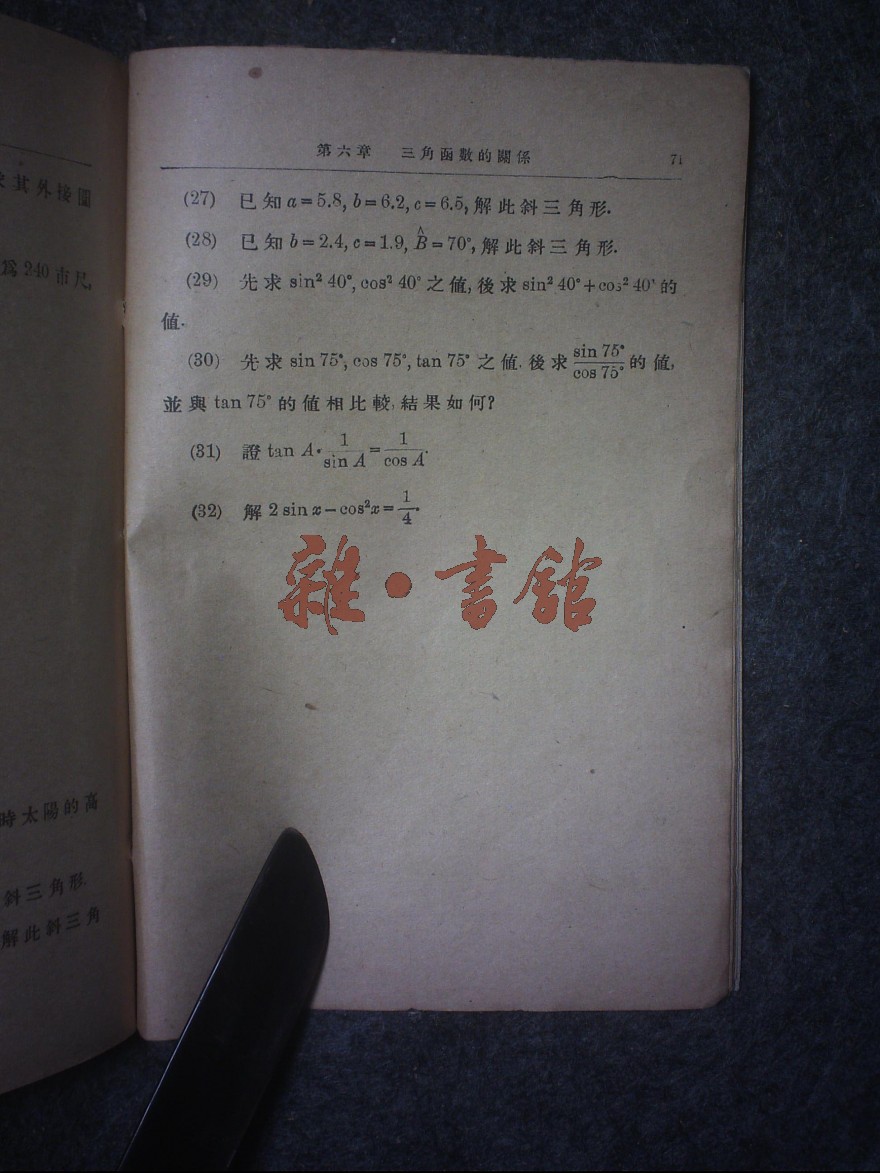 其外接圓
為 240 市尺,
時太陽的高
斜三角形.
解此斜三角
第六章 三角函數的關係 71
(27) 已知 a=5.8, b=6.2, c=6.5, 解此斜三角形.
(28) 已知 b=2.4, c=1.9, B̂=70°, 解此斜三角形.
(29) 先求 sin² 40°, cos² 40° 之值, 後求 sin² 40°+cos² 40° 的
值.
(30) 先求 sin 75°, cos 75°, tan 75° 之值, 後求 sin 75°/cos 75° 的值,
並與 tan 75° 的值相比較, 結果如何?
(31) 證 tan A·1/sin A=1/cos A.
(32) 解 2 sin x−cos²x=1/4.
雜·書館